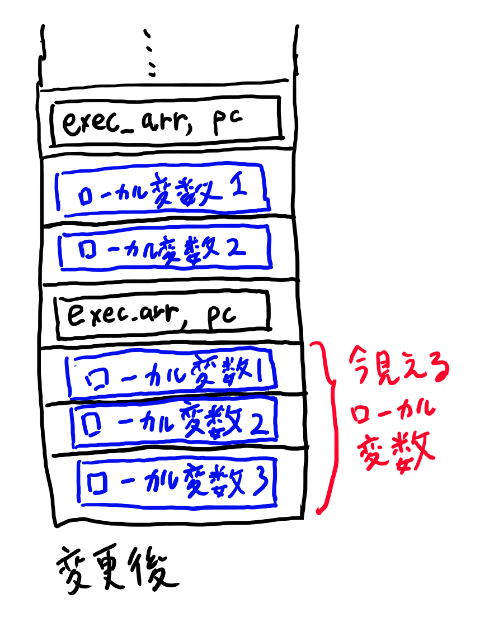 exec_arr, pc
ローカル変数1
ローカル変数2
exec.arr, pc
ローカル変数1
ローカル変数2
ローカル変数3
今見える
ローカル
変数
変更後